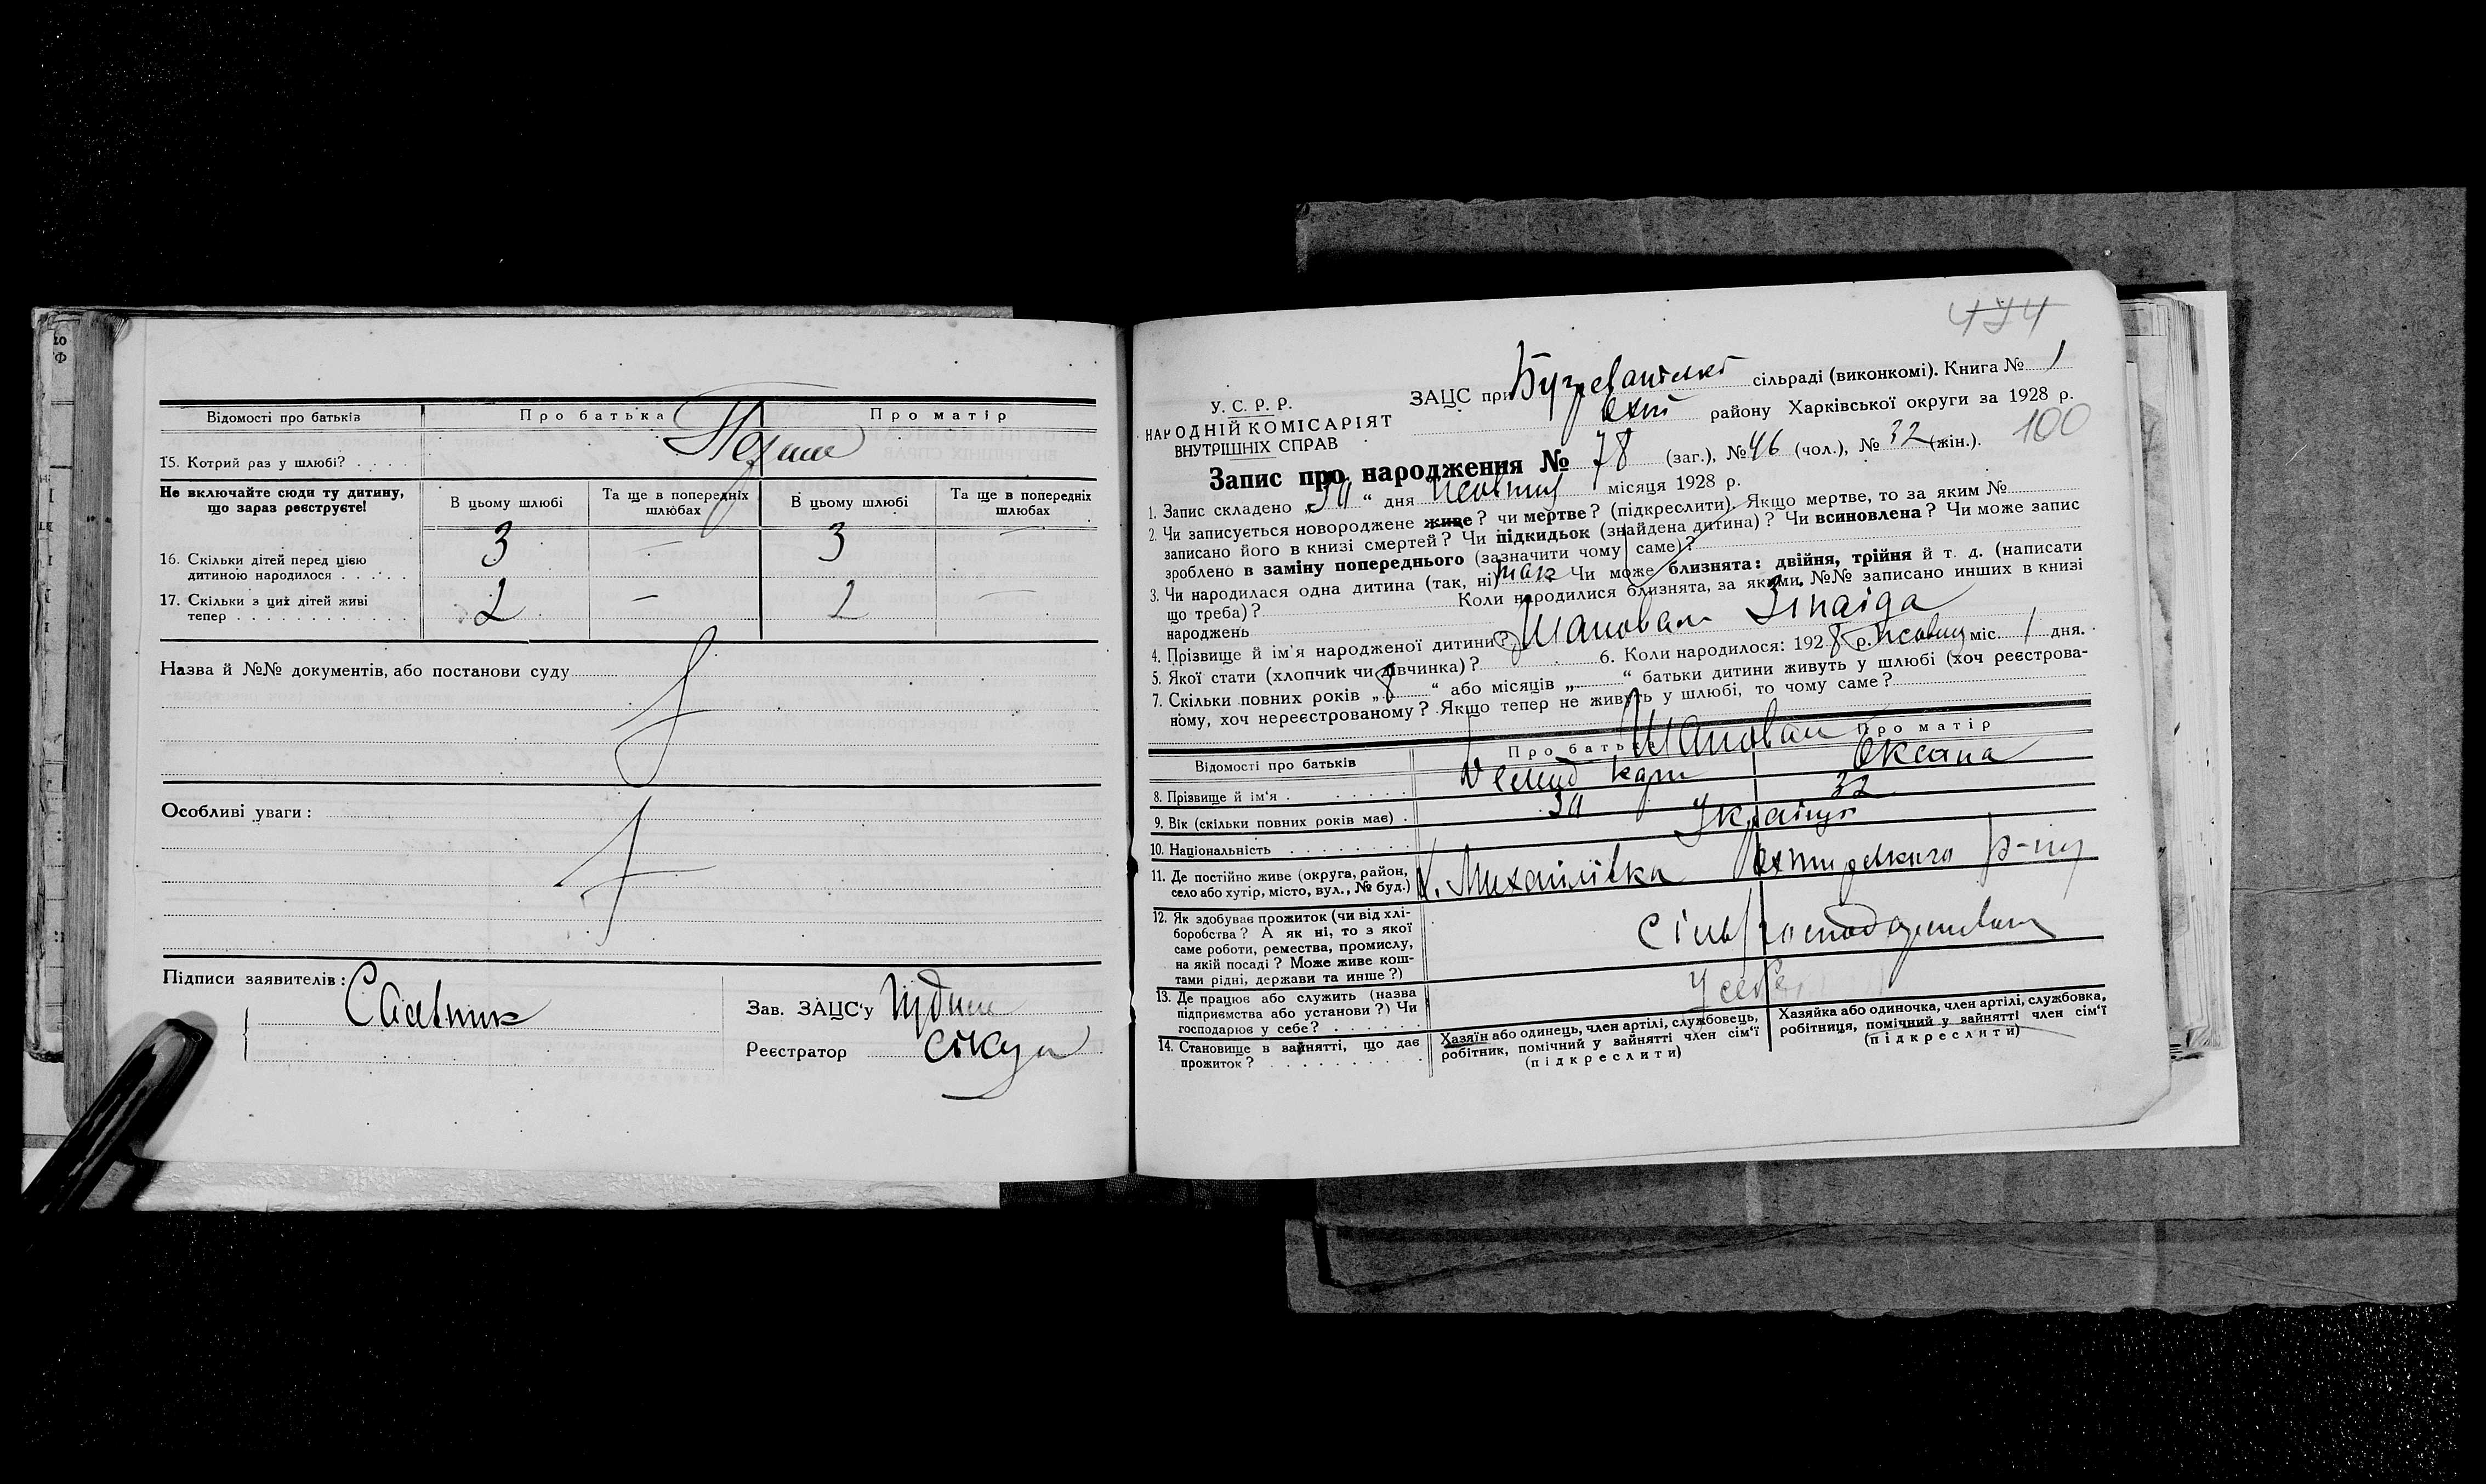 Відомості про батьків
Про батька
Про матір
15. Котрий раз у шлюбі? . . . .
Не включайте сюди ту дитину,
що зараз реєструєте!
В цьому шлюбі
Та ще в попередніх
шлюбах
В цьому шлюбі
Та ще в попередніх
шлюбах
16. Скільки дітей перед цією
дитиною народилося . . . . . .
3 — 3 —
17. Скільки з цих дітей живі
тепер . . . . . . . . . . . .
2 — 2 —
Назва й №№ документів, або постанови суду
Особливі уваги:
Підписи заявителів:
Зав. ЗАЦС'у
Реєстратор
474
У. С. Р. Р.
НАРОДНІЙ КОМІСАРІЯТ
ВНУТРІШНІХ СПРАВ
ЗАЦС при сільраді (виконкомі). Книга № 1
Охт району Харківської округи за 1928 р.
100
Запис про народження № 78 (заг.), № 46 (чол.), № 32 (жін.).
1. Запис складено „ “ дня Жовтня місяця 1928 р.
2. Чи записується новороджене живе? чи мертве? (підкреслити). Якщо мертве, то за яким №
записано його в книзі смертей? Чи підкидьок (знайдена дитина)? Чи всиновлена? Чи може запис
зроблено в заміну попереднього (зазначити чому саме)?
3. Чи народилася одна дитина (так, ні) так Чи може близнята: двійня, трійня й т. д. (написати
що треба)? Коли народилися близнята, за якими №№ записано инших в книзі
народжень
4. Прізвище й ім'я народженої дитини? Шаповал Зінаіда
5. Якої статі (хлопчик чи дівчинка)? 6. Коли народилося: 1928 р. Жовтня міс. 1 дня.
7. Скільки повних років „ 8 “ або місяців „ “ батьки дитини живуть у шлюбі (хоч реєстрова-
ному, хоч нереєстрованому? Якщо тепер не живуть у шлюбі, то чому саме?
Відомості про батьків
Про батька
Про матір
Шаповал
8. Прізвище й ім'я . . . . . . .
Демид Карп
Оксана
9. Вік (скільки повних років має) .
32
10. Національність . . . . . . . .
Українці
11. Де постійно живе (округа, район,
село або хутір, місто, вул., № буд.)
х. Михайлівка Охтирського р-ну
12. Як здобуває прожиток (чи від хлі-
боробства? А як ні, то з якої
саме роботи, ремества, промислу,
на якій посаді? Може живе кош-
тами рідні, держави та инше?)
Сільгосподарством
13. Де працює або служить (назва
підприємства або установи?) Чи
господарює у себе? . . . . . .
У себе
14. Становище в зайнятті, що дає
прожиток? . . . . . . . . . .
Хазяїн або одинець, член артілі, службовець,
робітник, помічний у зайнятті член сім'ї
(підкреслити)
Хазяйка або одиночка, член артілі, службовка,
робітниця, помічний у зайнятті член сім'ї
(підкреслити)